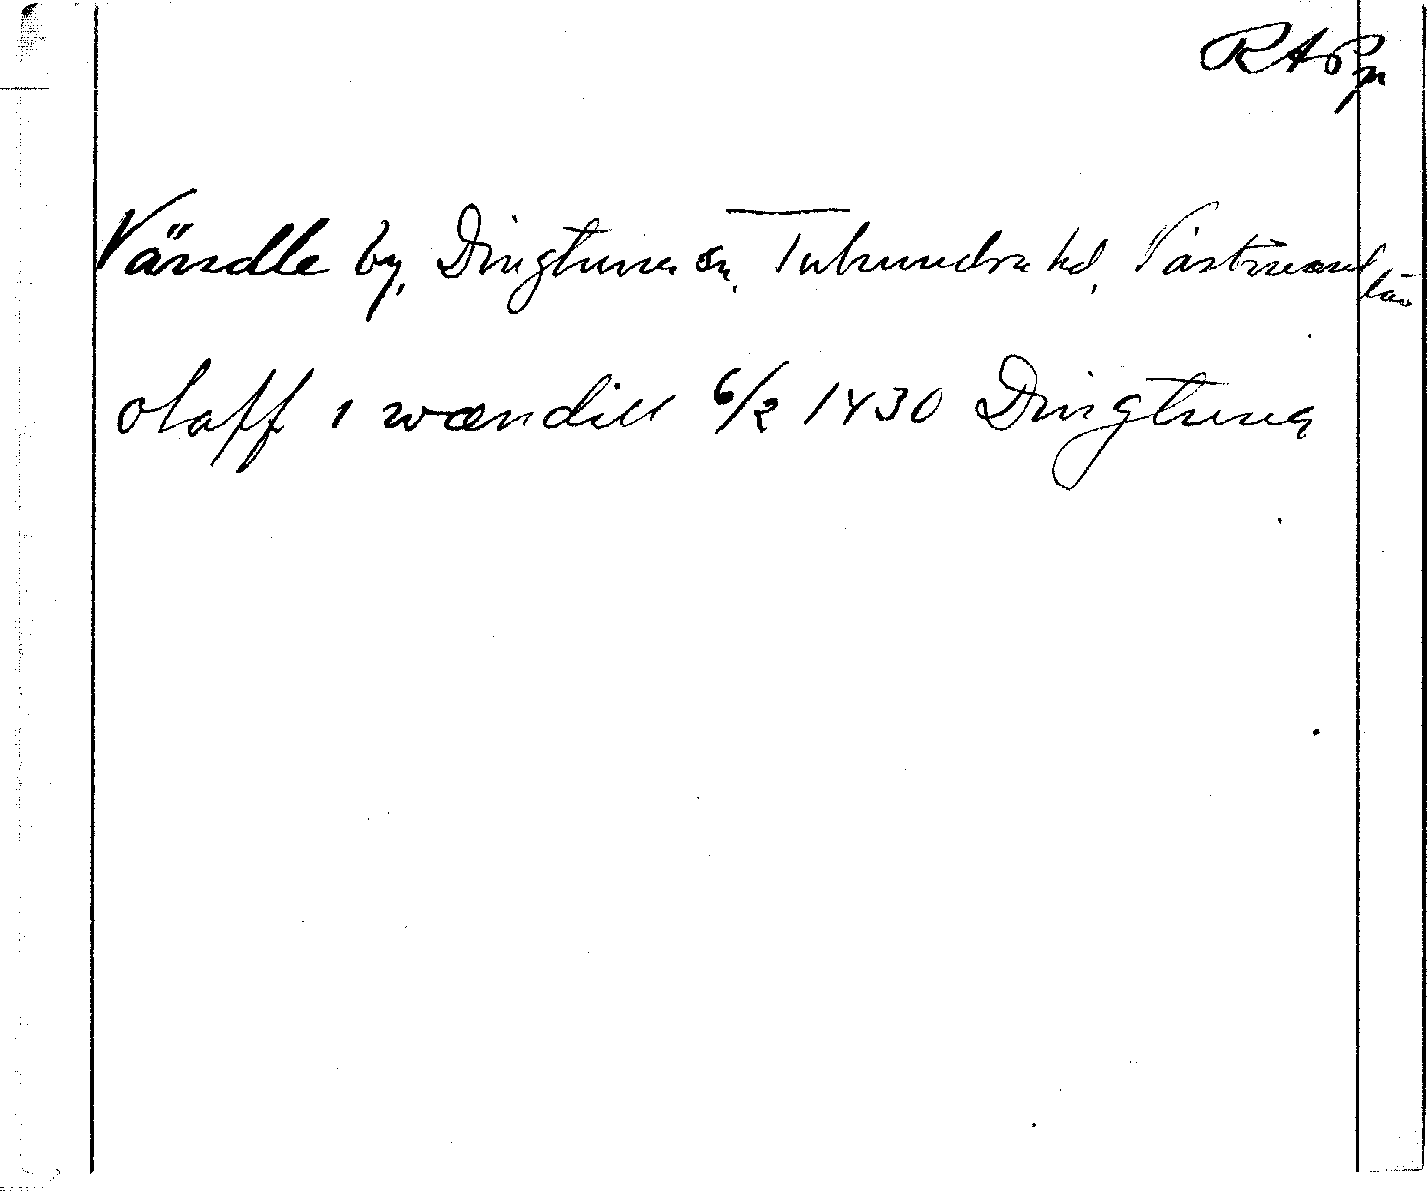 RAPp
Vändle by, Dingtuna sn, Tuhundra hd, Västmanl
län
olaff i wændill 6/2 1430 Dingtuna